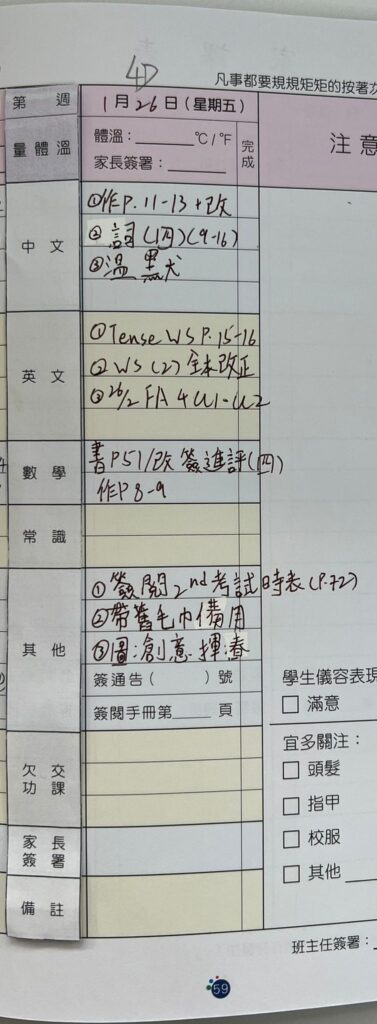 4D
凡事都要規規矩矩的按著次
第 週
1月26日(星期五)
注意
量體溫
體溫：______℃/℉
家長簽署：______
完成
中文
①作P.11-13+改
②詞(四)(9-16)
③溫 黑犬
英文
①Tense WS P.15-16
②WS (2) 全本改正
③26/2 FA 4U1-U2
數學
書P51/改 簽進評(四)
作P8-9
常識
其他
①簽閱2nd考試時表(P.72)
②帶舊毛巾備用
③圖:創意揮春
簽通告( )號
簽閱手冊第____頁
學生儀容表現
□ 滿意
欠交功課
宜多關注：
□ 頭髮
□ 指甲
□ 校服
□ 其他
家長簽署
備註
班主任簽署：
59